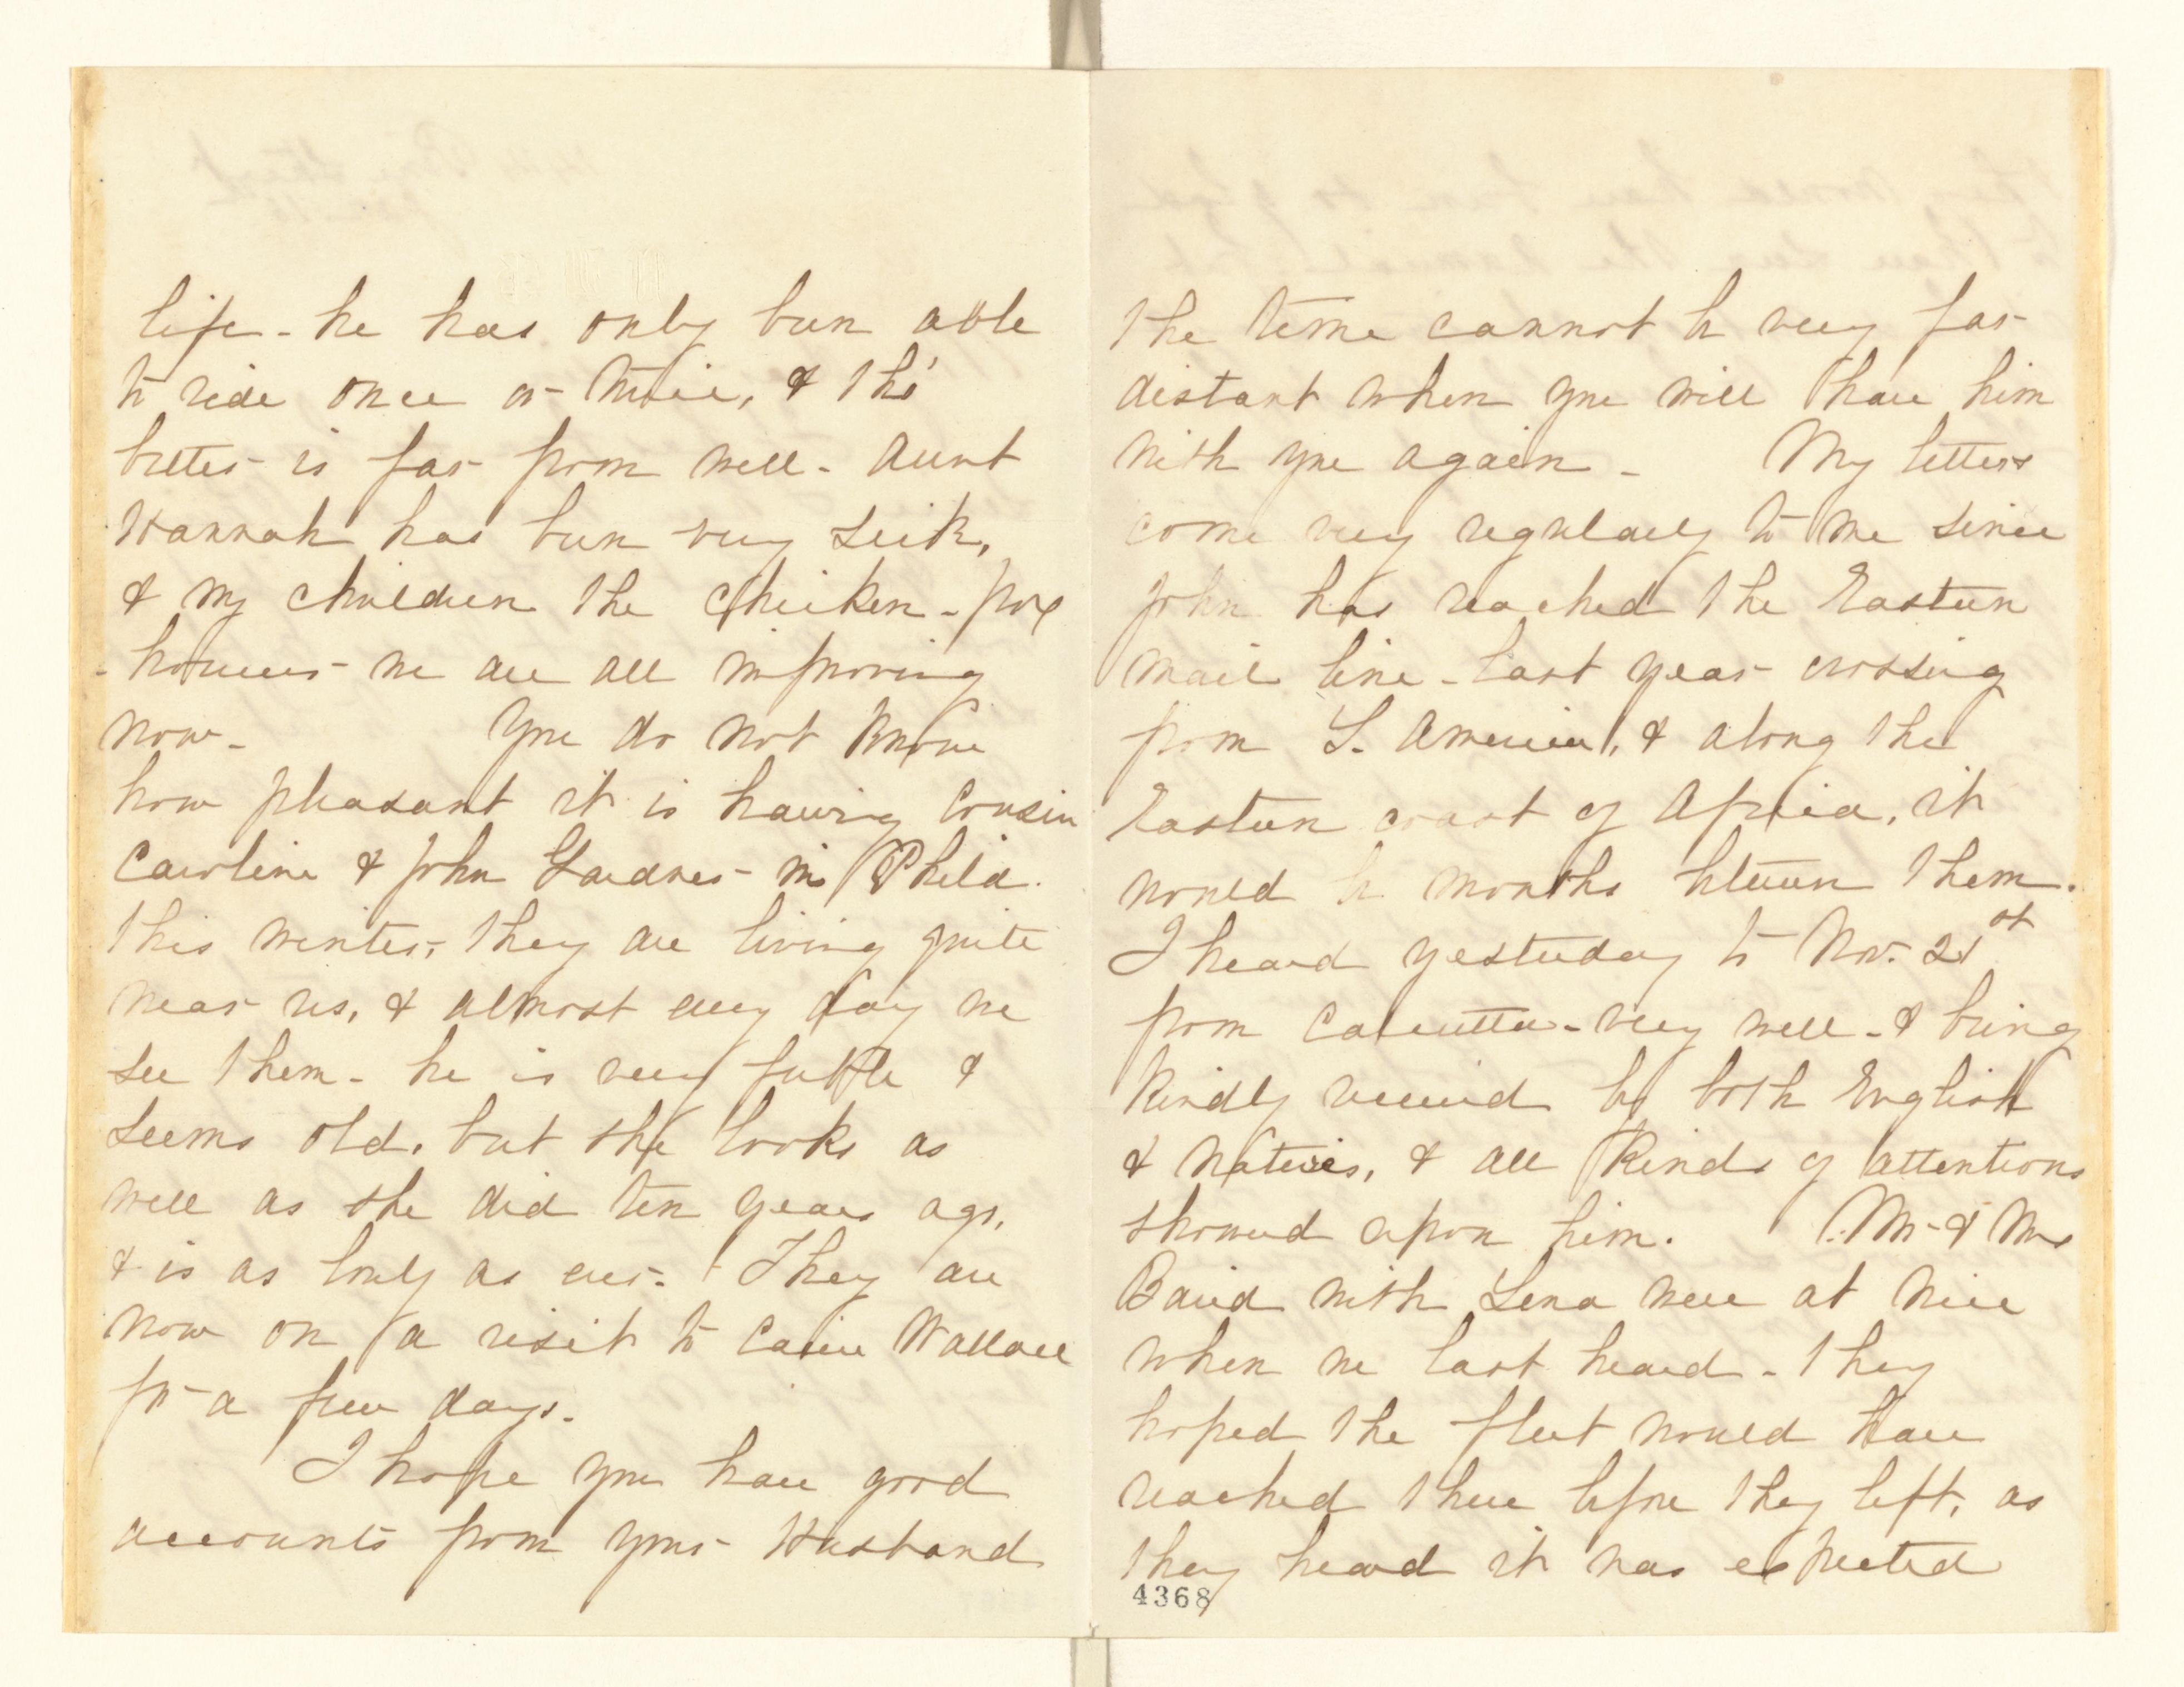 life - he has only been able
to ride once or twice, & tho'
better is far from well - Aunt
Hannah has been very sick,
& my children the chicken-pox
- however we are all improving
now - You do not know
how pleasant it is having Cousin
Caroline & John Gardner in Philad.
this winter, they are living quite
near us, & almost every day we
see them - he is very feeble &
seems old, but she looks as
well as she did ten years ago,
& is as lovely as ever. They are
now on a visit to Carrie Wallace
for a few days.
I hope you have good
accounts from your Husband
the time cannot be very far
distant when you will have him
with you again - My letters
come very regularly to me since
John has reached the Eastern
mail line - last year crossing
from S. America, & along the
Eastern coast of Africa, it
would be months between them.
I heard yesterday to Nov. 21st
from Calcutta - very well - & being
kindly received by both English
& Natives, & all kinds of attentions
showed upon him. Mr & Mrs
Baird with Lena were at Nice
when we last heard - they
hoped the fleet would have
reached there before they left, as
they heard it was expected
4368